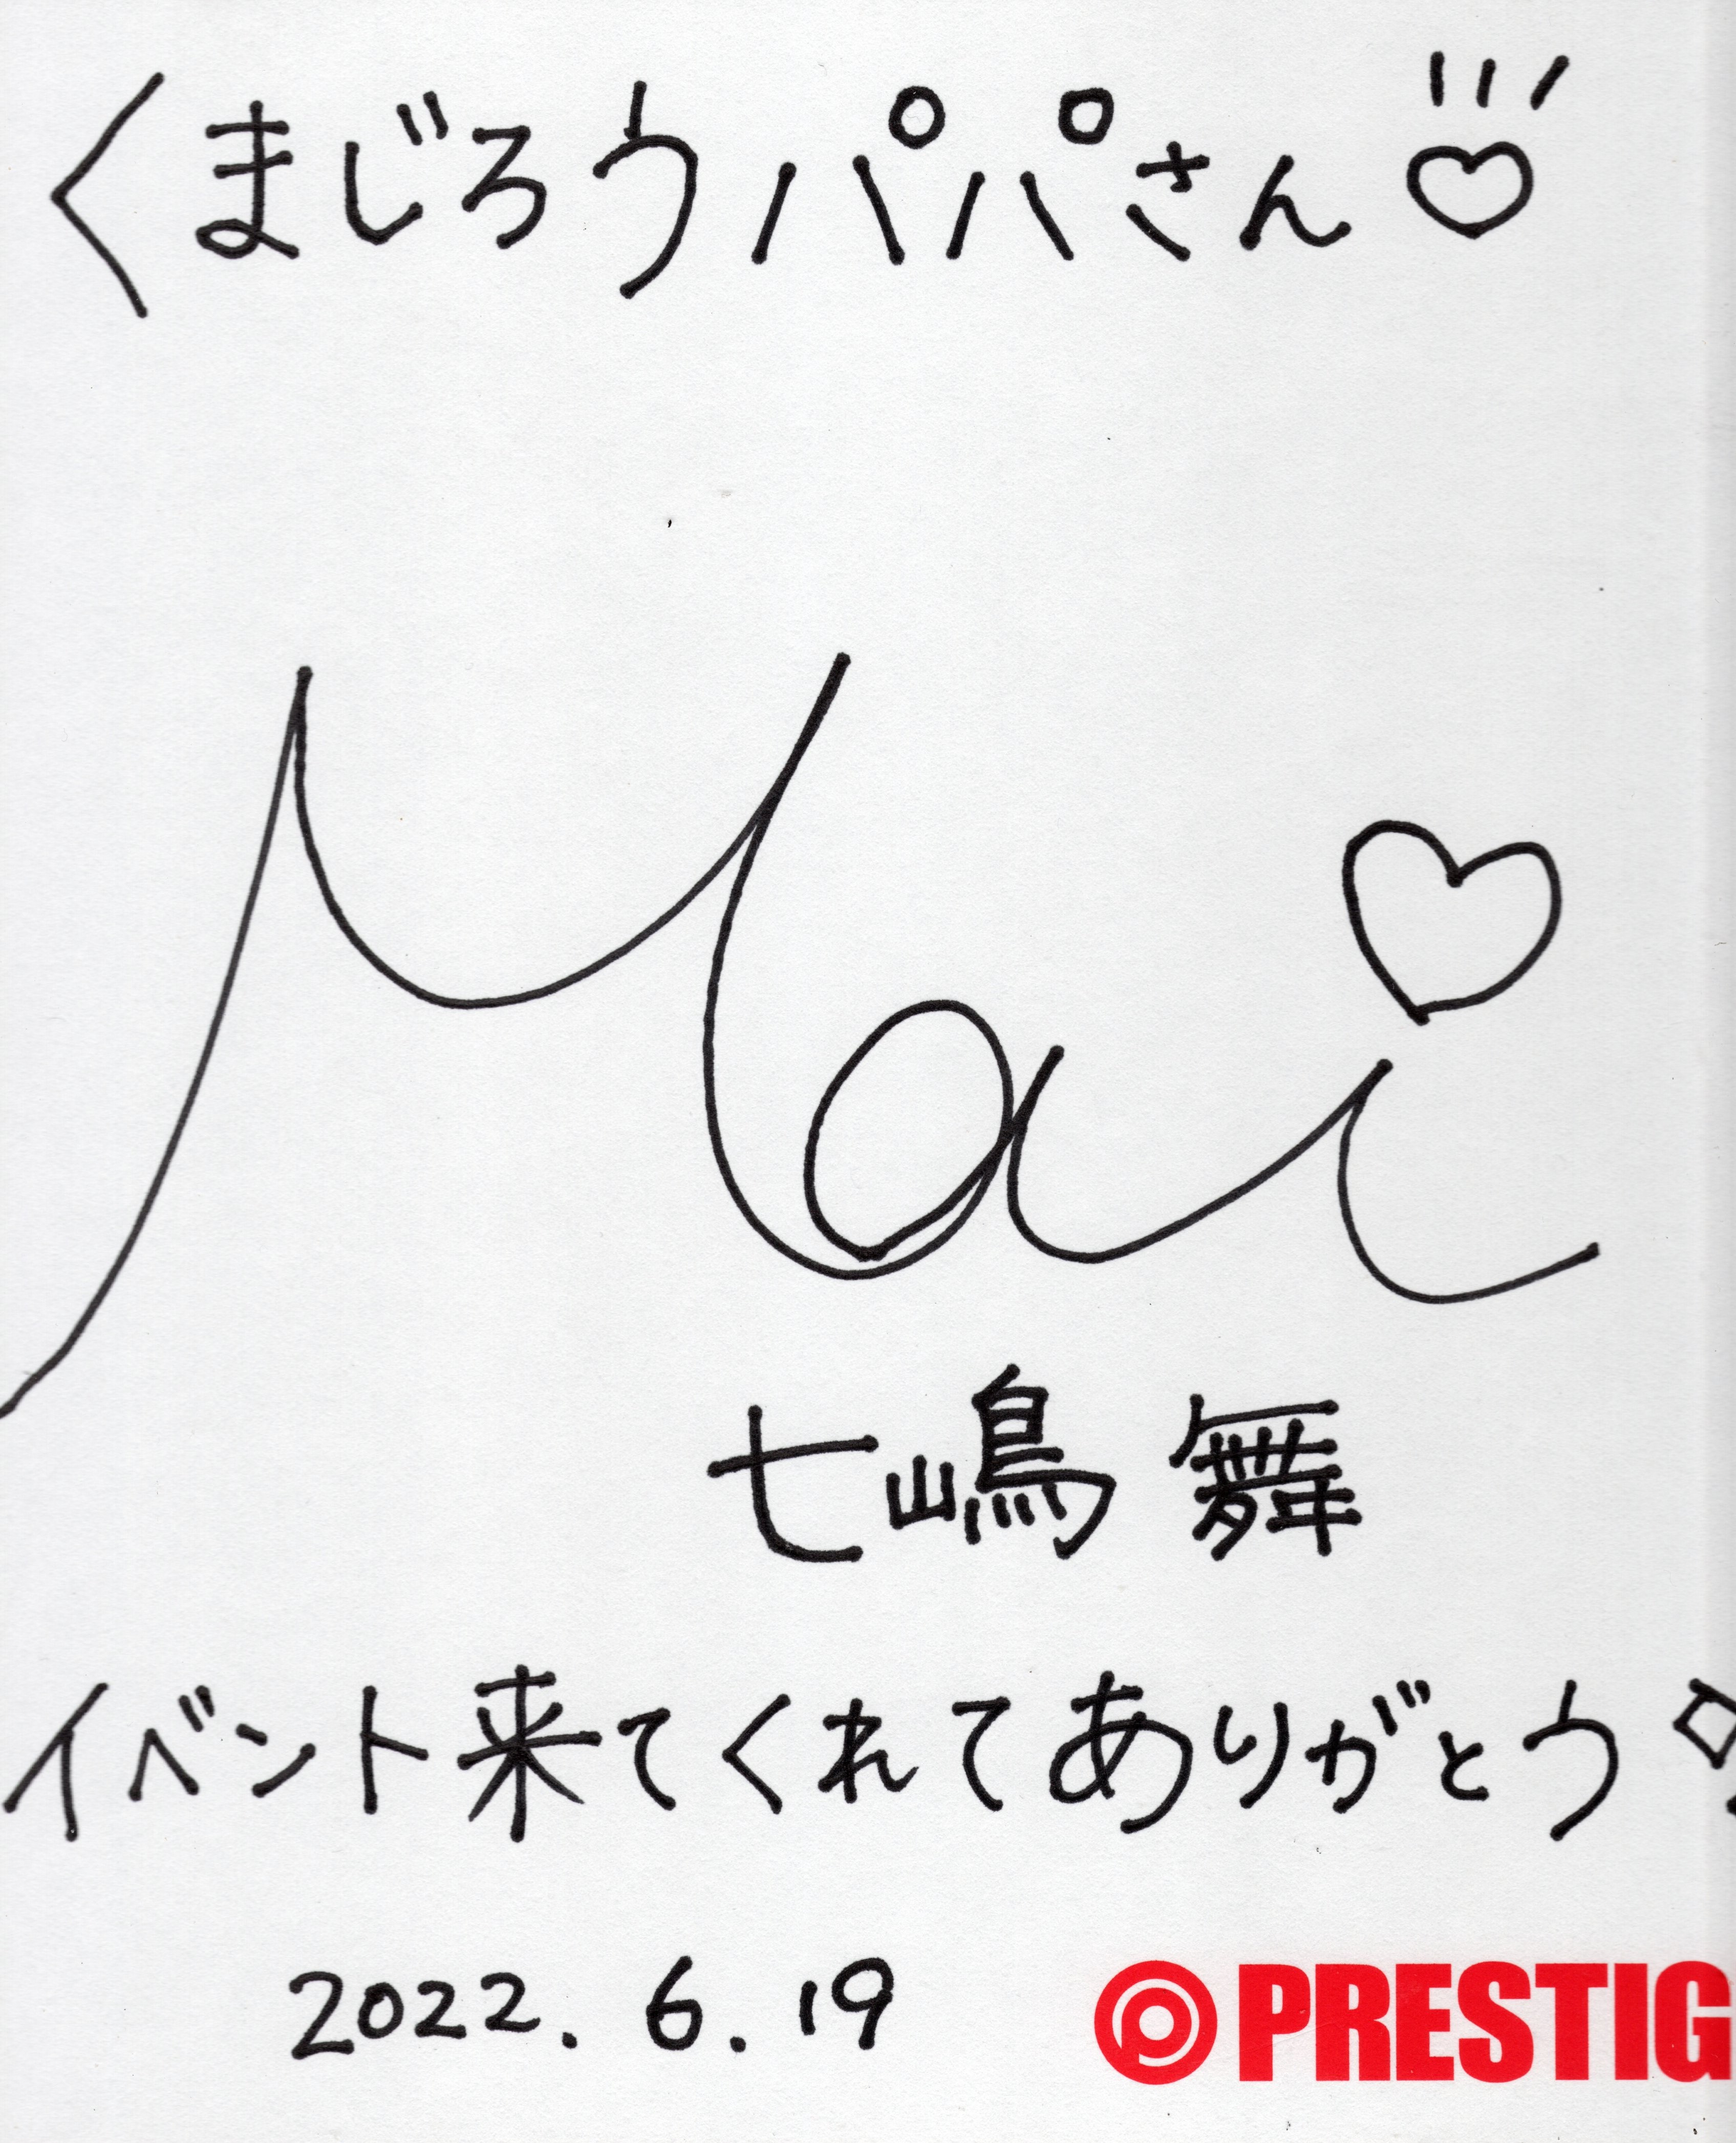 くまじろうパパさん♡
Mai
七嶋 舞
イベント来てくれてありがとう
2022.6.19
PRESTIG